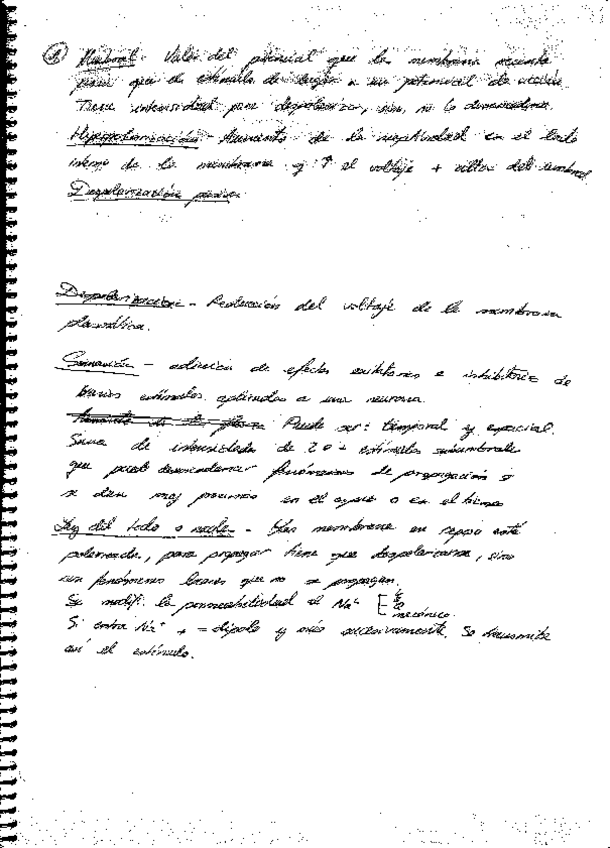 ① Umbral - Valor del potencial que la membrana necesita
para que el estímulo de lugar a un potencial de acción.
Tiene intensidad para despolarizar, sino, no lo desencadena
Hiperpolarización - Aumento de la negatividad en el lado
interno de la membrana y ↑ el voltaje + valor del umbral
Despolarización
Despolarización - Reducción del voltaje de la membrana
plasmática.
Sumación - adición de efectos excitatorios e inhibitorios de
varios estímulos aplicados a una neurona.
Puede ser: temporal y espacial.
Suma de intensidades de 2 o + estímulos subumbrales
que puede desencadenar fenómenos de propagación si
se dan muy próximos en el espacio o en el tiempo
Ley del todo o nada - Una membrana en reposo está
polarizada, para propagar tiene que despolarizarse, sino
son fenómenos locales que no se propagan.
Se modif. la permeabilidad al Na⁺ [ mecánico
Si entra Na⁺ + - dipolo y así sucesivamente se transmite
así el estímulo.